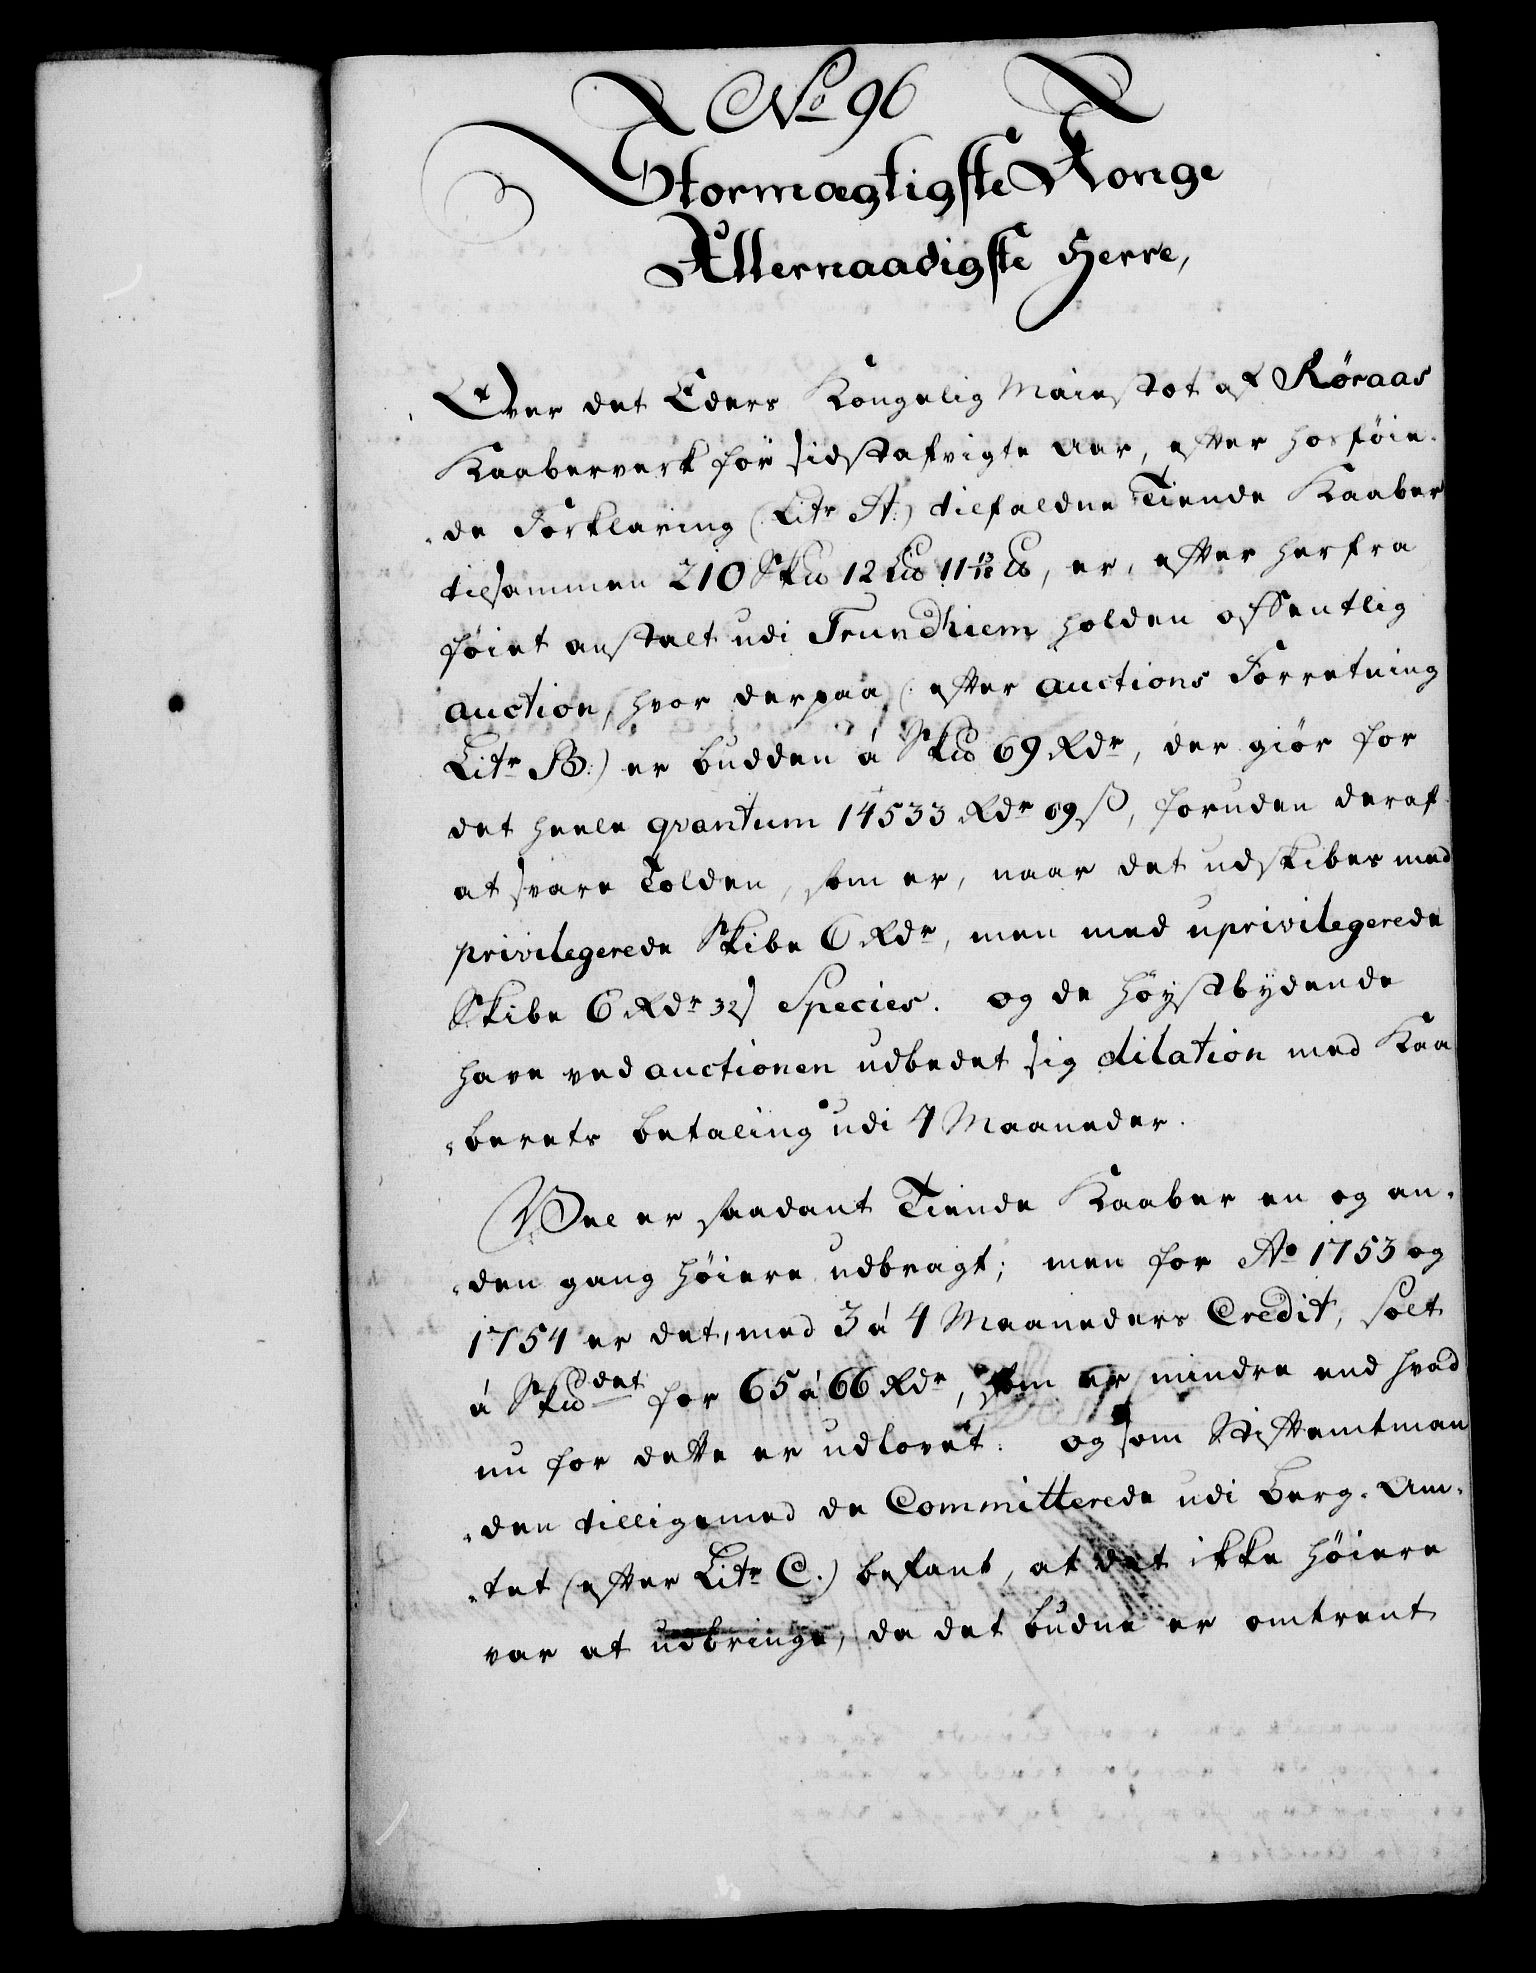 No 96
Stormægtigste Konge
Allernaadigste Herre,
Over det Eders Kongelig Maiestæt af Röraas
Kaaberverk for sidstafvigte Aar, efter hosföien-
de Forklaring (Litr A:) tilfaldne Tiende Kaaber
tilsammen 210 Sk℔ 12 L℔ 11 ℔, er, efter herfra
föiet anstalt udi Trundhiem holden offentlig
auction, hvor derpaa (: efter auctions Forretning
Litr B:) er budden á Sk℔ 69 Rdr, der giör for
det heele qvantum 14533 Rdr 69 ß, foruden deraf
at svare Tolden, som er, naar det udskibes med
privilegerede Skibe 6 Rdr, men med uprivilegerede
Skibe 6 Rdr 32 ß Species. og de höystbydende
have ved auctionen udbedet sig dilation med Kaa
-berets betaling udi 4 Maaneder.
Vel er saadant Tiende Kaaber en og an-
-den gang höiere udbragt; men for Ao 1753 og
1754 er det, med 3 á 4 Maaneders Credit, solt
á Sk℔det for 65 á 66 Rdr, som er mindre end hvad
nu for dette er udlovet: og som Stiftamtman
-den tilligemed de Committerede udi Berg-Am-
-tet (efter Litr C.) befant, at det ikke höiere
var at udbringe, da det budne er omtrent